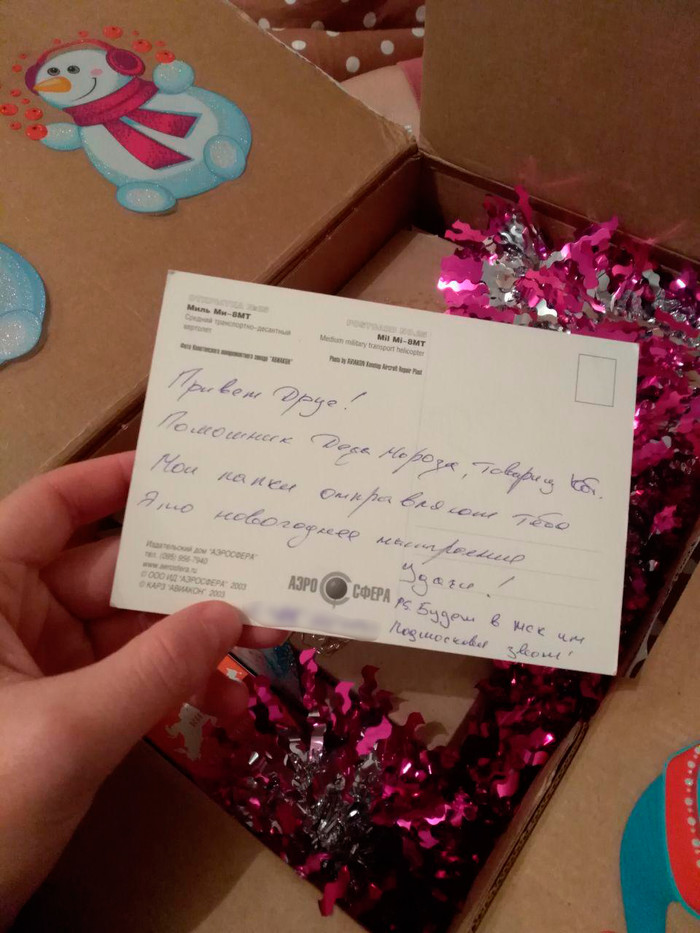 ОТКРЫТКА №25
Миль Ми-8МТ
Средний транспортно-десантный
вертолет
Фото Конотопского авиаремонтного завода "АВИАКОН"
POSTCARD NO.25
Mil Mi-8MT
Medium military transport helicopter
Photo by AVIAKON Konotop Aircraft Repair Plant
Привет Друг!
Помошник Деда Мороза, Товарищ
Мои папки отправляют тебе
Ято новогоднее настроение
Удачи!
PS Будеш в мск или
Подмосковье звони!
Издательский дом "АЭРОСФЕРА"
тел. (095) 956-7940
www.aerosfera.ru
© ООО ИД "АЭРОСФЕРА", 2003
© КАРЗ "АВИАКОН", 2003
АЭРО СФЕРА